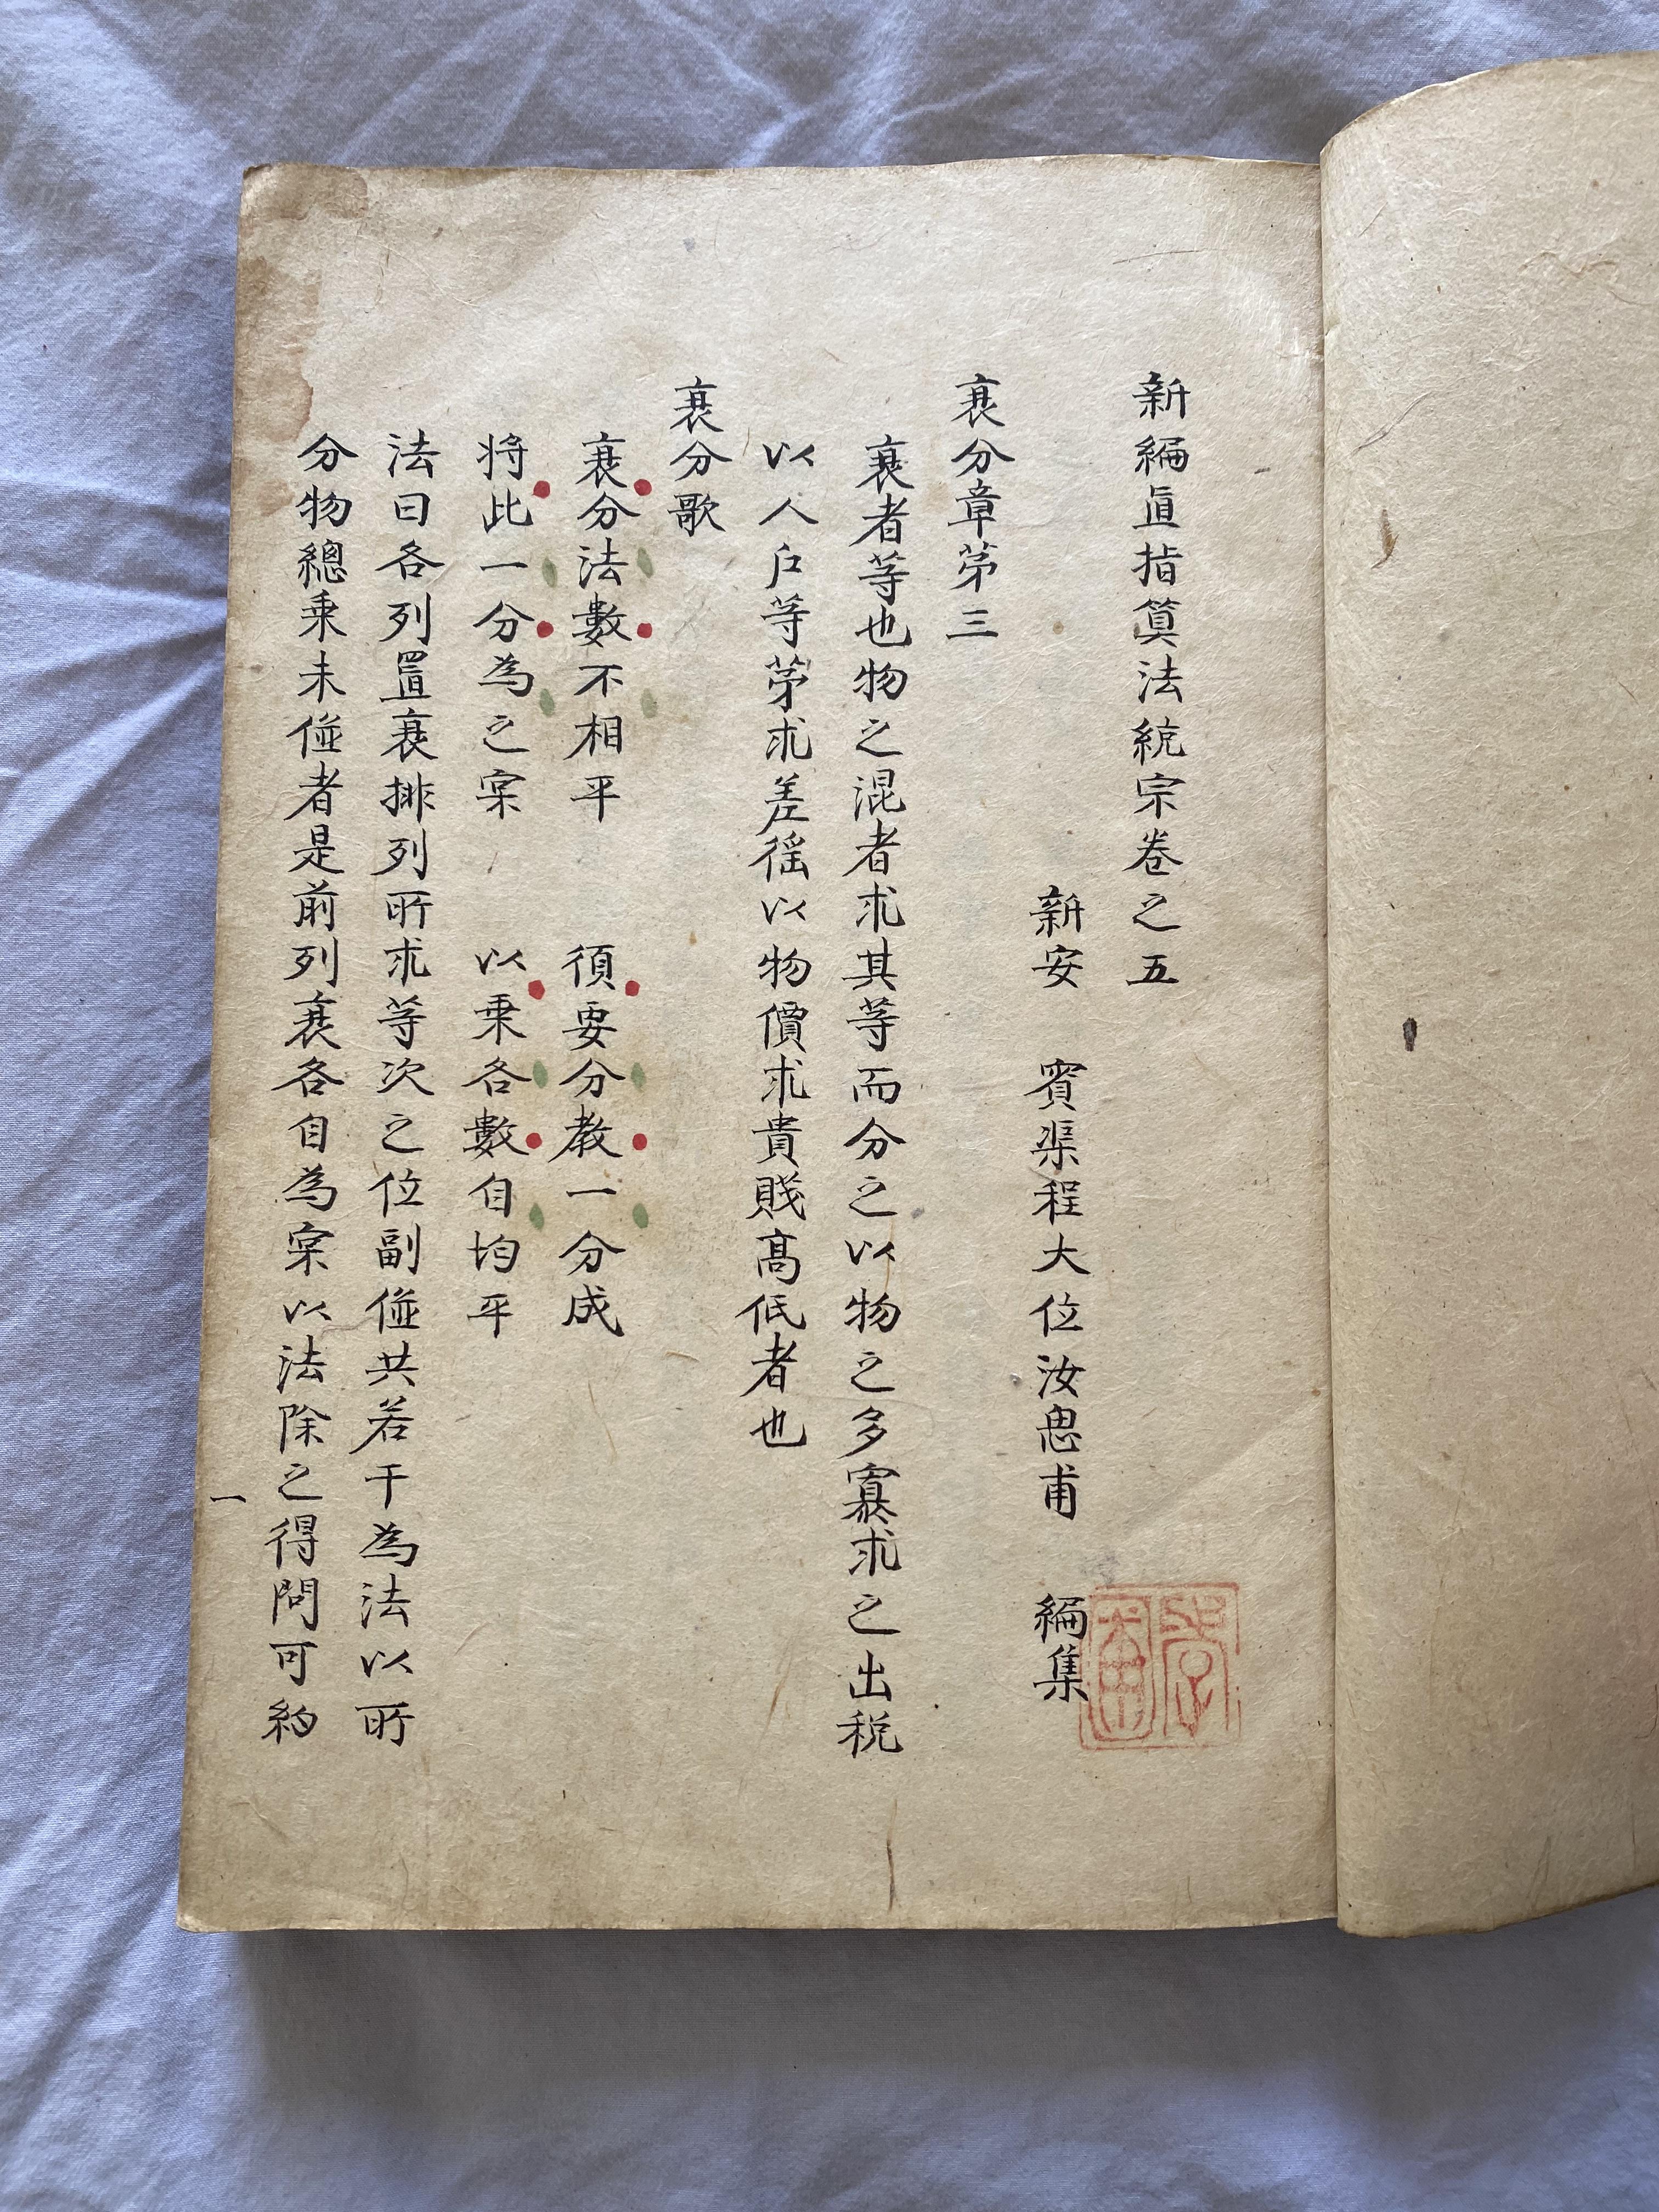 新編直指筭法統宗卷之五
新安 賓渠程大位汝思甫 編集
衰分章第三
衰者等也物之混者求其等而分之以物之多寡求之出税
以人戶等第求差徭以物價求貴賤高低者也
衰分歌
衰分法數不相平 須要分教一分成
將此一分為之實 以乗各數自均平
法曰各列置衰排列所求等次之位副倂共若干為法以所
分物總乗未倂者是前列衰各自為實以法除之得問可約
一